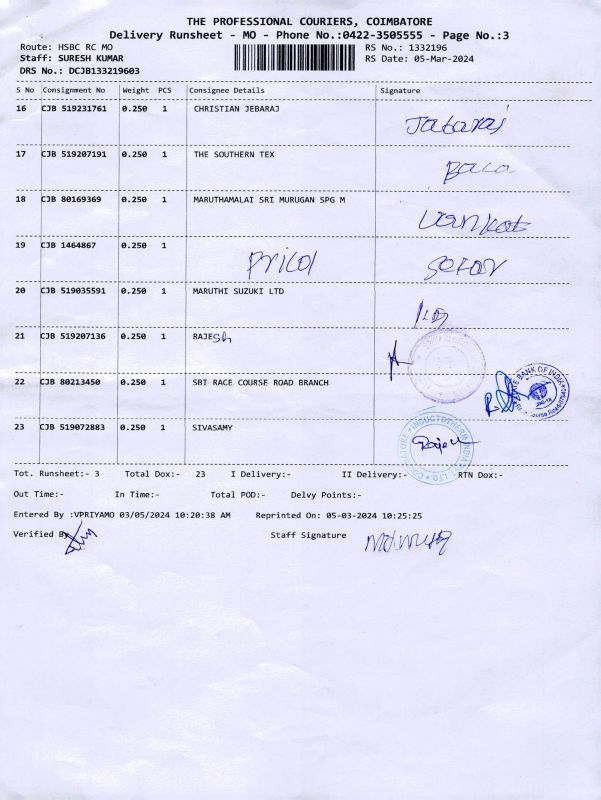 THE PROFESSIONAL COURIERS, COIMBATORE
Delivery Runsheet - MO - Phone No.:0422-3505555 - Page No.:3
Route: HSBC RC MO RS No.: 1332196
Staff: SURESH KUMAR RS Date: 05-Mar-2024
DRS No.: DCJB133219603
S No Consignment No Weight PCS Consignee Details Signature
16 CJB 519231761 0.250 1 CHRISTIAN JEBARAJ
17 CJB 519207191 0.250 1 THE SOUTHERN TEX
18 CJB 80169369 0.250 1 MARUTHAMALAI SRI MURUGAN SPG M
Venkat
19 CJB 1464867 0.250 1
Pricol
20 CJB 519035591 0.250 1 MARUTHI SUZUKI LTD
21 CJB 519207136 0.250 1 RAJESh
22 CJB 80213450 0.250 1 SBI RACE COURSE ROAD BRANCH
STATE BANK OF INDIA
23 CJB 519072883 0.250 1 SIVASAMY
INDUCTOTHERM INDIA LTD
Tot. Runsheet:- 3 Total Dox:- 23 I Delivery:- II Delivery:- RTN Dox:-
Out Time:- In Time:- Total POD:- Delvy Points:-
Entered By :VPRIYAMO 03/05/2024 10:20:38 AM Reprinted On: 05-03-2024 10:25:25
Verified By Staff Signature